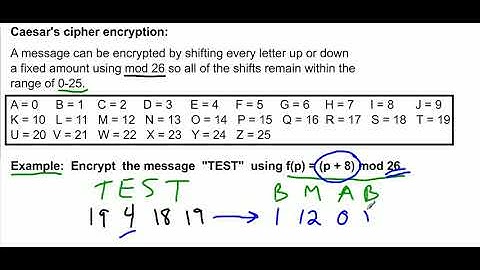 Caesar's cipher encryption:
A message can be encrypted by shifting every letter up or down
a fixed amount using mod 26 so all of the shifts remain within the
range of 0-25.
A = 0 B = 1 C = 2 D = 3 E = 4 F = 5 G = 6 H = 7 I = 8 J = 9
K = 10 L = 11 M = 12 N = 13 O = 14 P = 15 Q = 16 R = 17 S = 18 T = 19
U = 20 V = 21 W = 22 X = 23 Y = 24 Z = 25
Example: Encrypt the message "TEST" using f(p) = (p + 8) mod 26.
T E S T B M A B
19 4 18 19 → 1 12 0 1